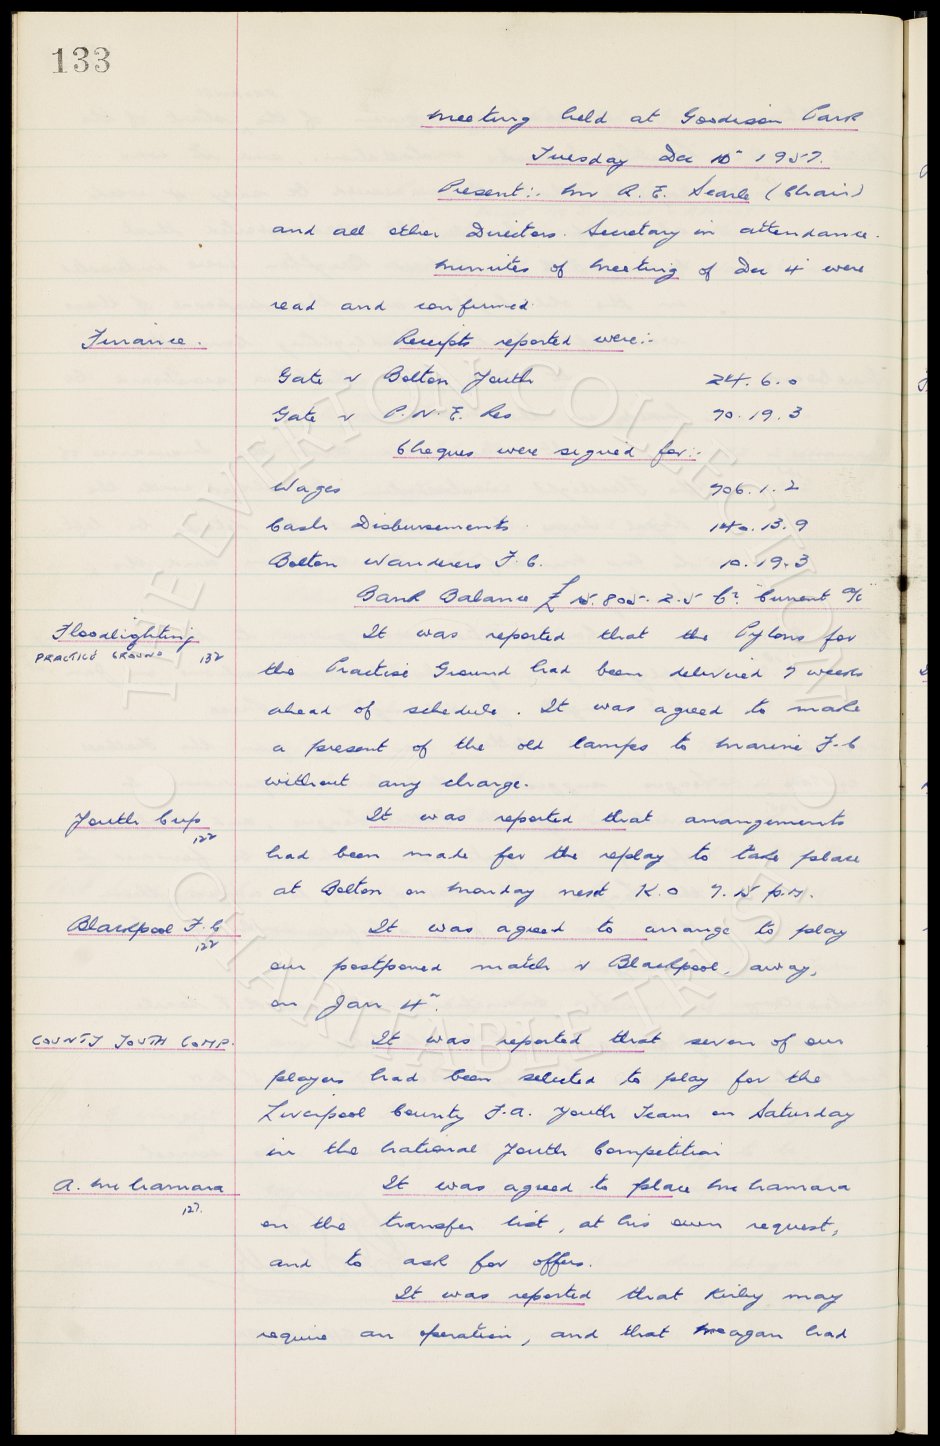 133
Meeting held at Goodison Park
Tuesday Dec 10" 1957.
Present:- Mr R. E. Searle (Chair)
and all other Directors. Secretary in attendance.
Minutes of Meeting of Dec 4" were
read and confirmed.
Finance.
Receipts reported were:-
Gate v Bolton Youth 24. 6. 0
Gate v P.N.E. Res 70. 19. 3
Cheques were signed for:-
Wages 706. 1. 2
Cash Disbursements 140. 13. 9
Bolton Wanderers F.C. 10. 19. 3
Bank Balance £ 15. 805. 2. 5 Cr. Current A/c
Floodlighting
PRACTICE GROUND 132
It was reported that the Pylons for
the Practise Ground had been delivered 7 weeks
ahead of schedule. It was agreed to make
a present of the old lamps to Marine F.C
without any charge.
Youth Cup
122
It was reported that arrangements
had been made for the replay to take place
at Bolton on Monday next K.O 7.15 p.m.
Blackpool F.C
122
It was agreed to arrange to play
our postponed match v Blackpool, away,
on Jan 4".
COUNTY YOUTH COMP.
It was reported that seven of our
players had been selected to play for the
Liverpool County F.A. Youth Team on Saturday
in the National Youth Competition
A. McNamara
127.
It was agreed to place McNamara
on the transfer list, at his own request,
and to ask for offers.
It was reported that Kirby may
require an operation, and that Meagan had
© THE EVERTON COLLECTION
CHARITABLE TRUST